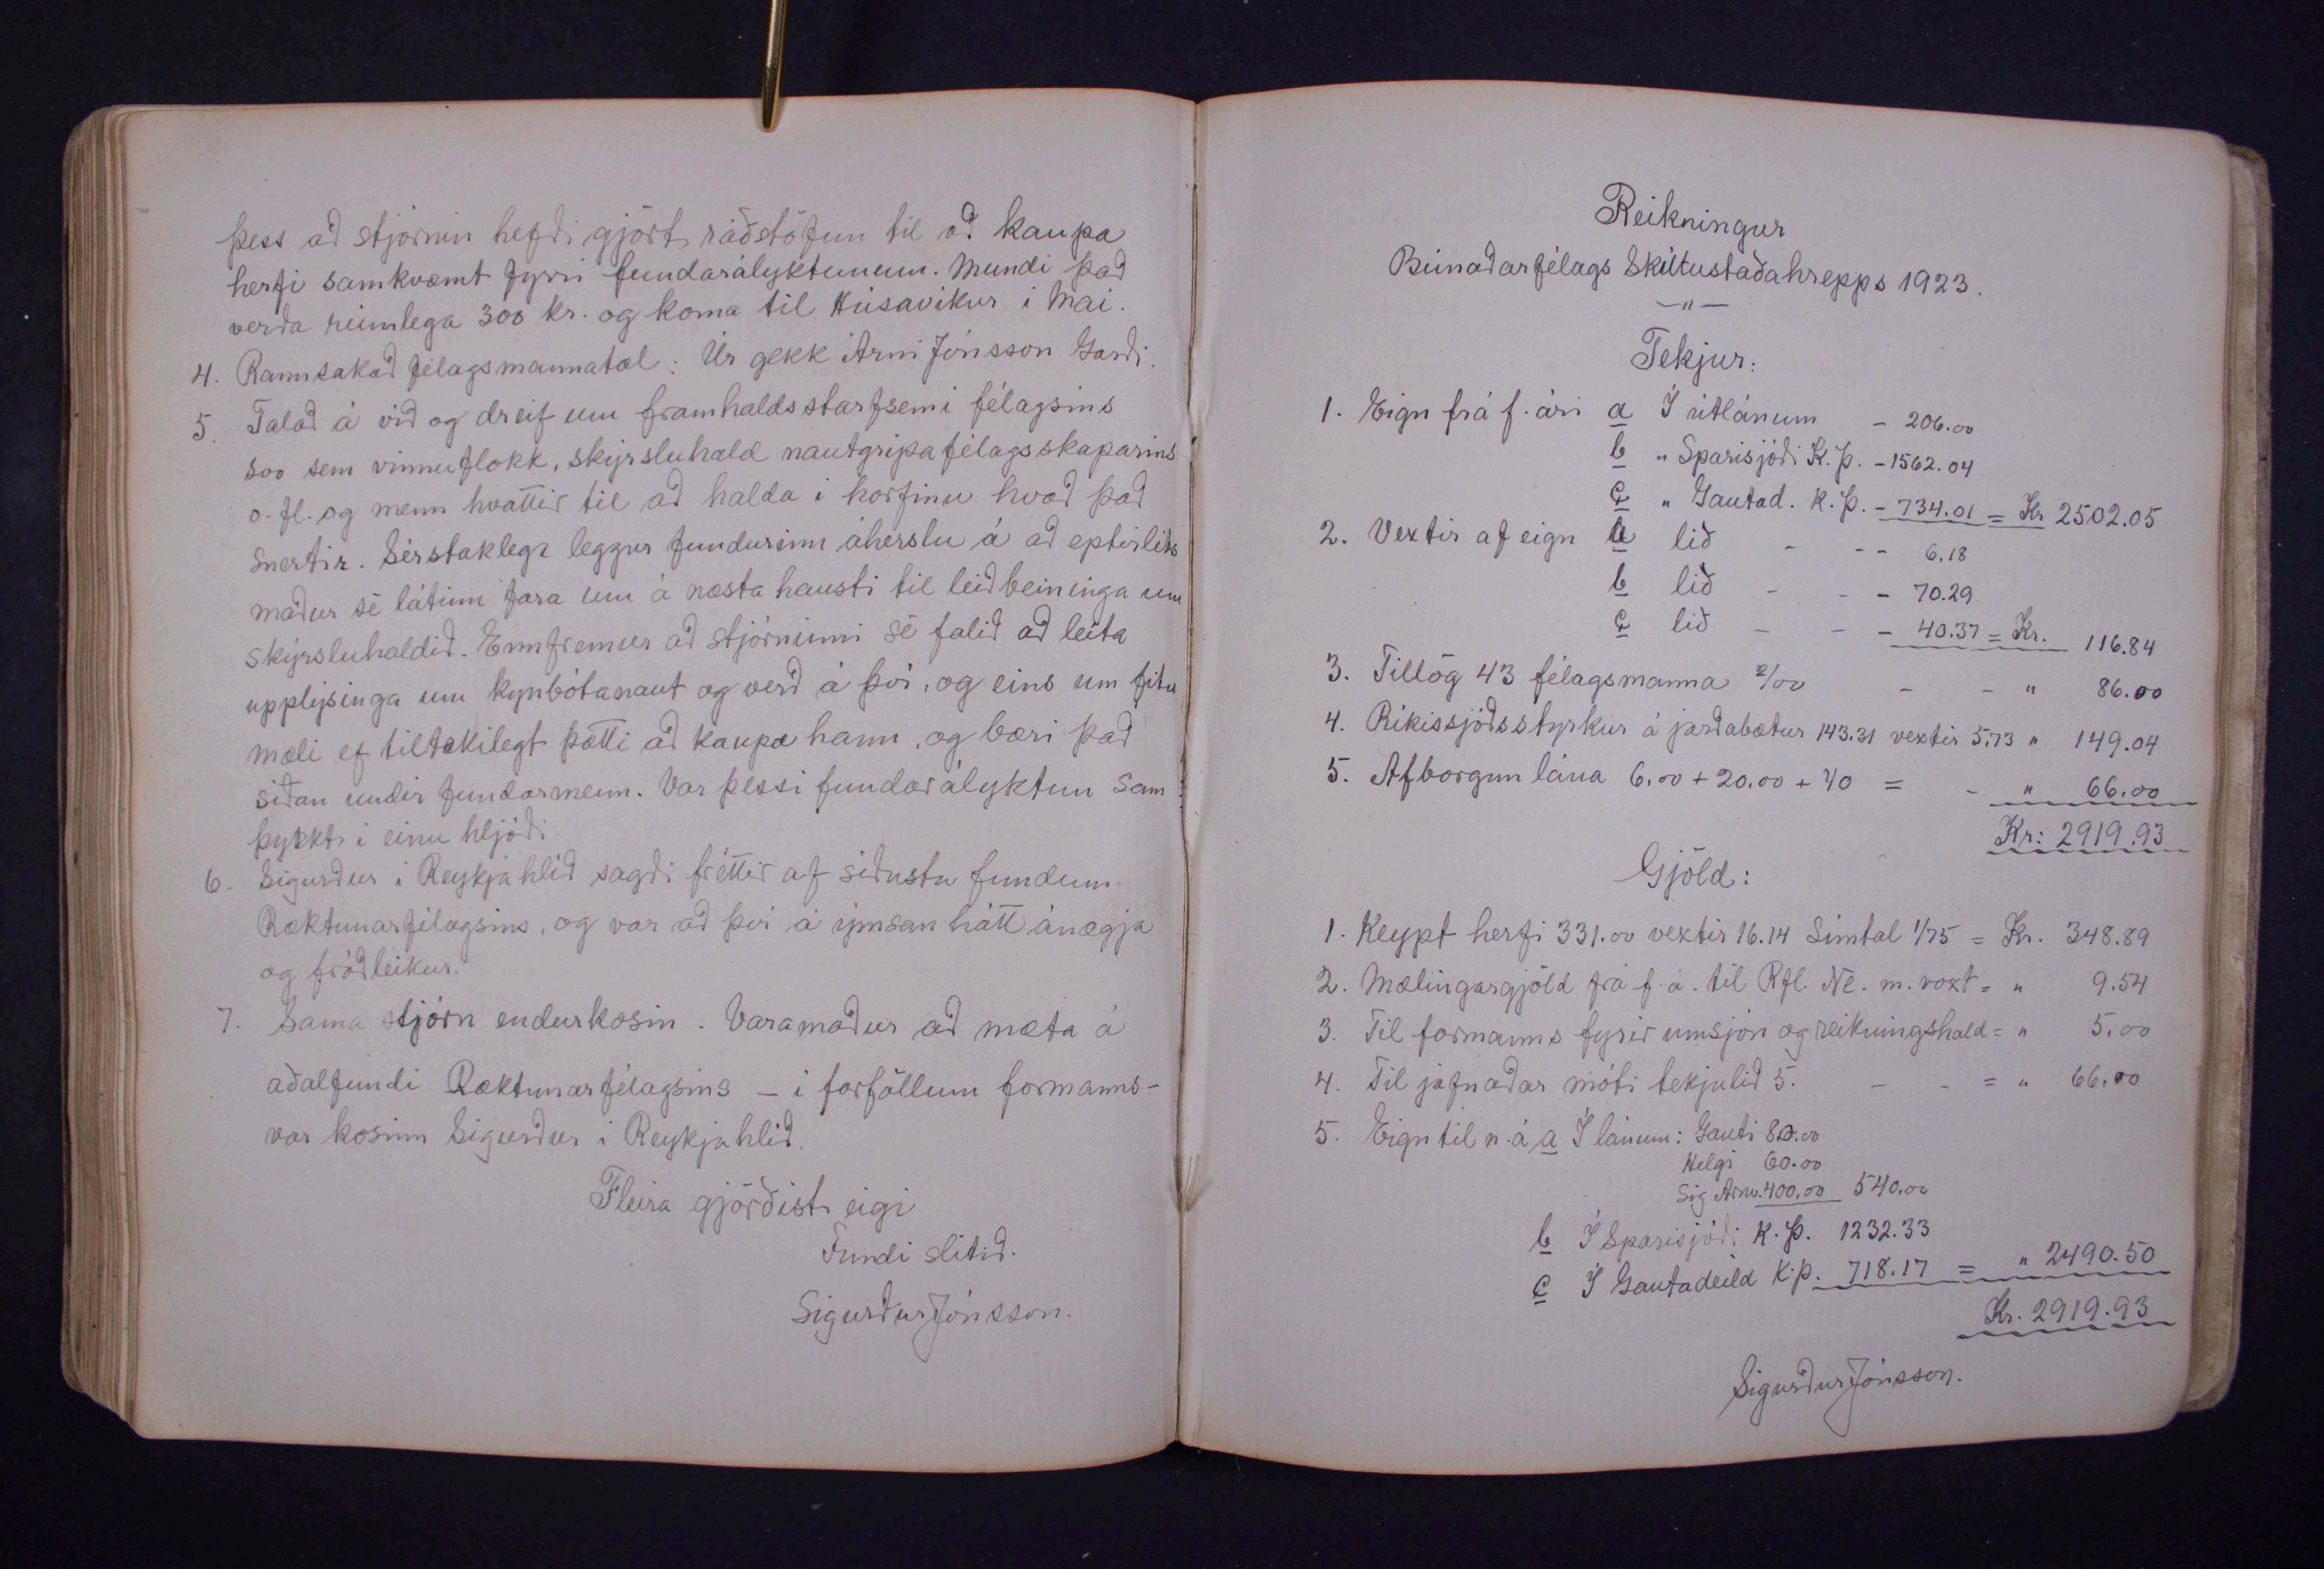 þess að stjórnin hefdi gjört ráðstöfun til að kaupa
herfi samkvæmt fyrri fundarályktunum. Mundi það
verða rúmlega 300 kr. og koma til Húsavíkur í Mai.
4. Rannsakað félagsmannatal: Úr gekk Árni Jónsson Garði.
5. Talað á víð og dreif um framhaldsstarfsemi félagsins
svo sem vinnuflokk, skýrsluhald nautgripafélagsskaparins
o.fl. og menn hvattir til að halda í horfinu hvað það
snertir. Sérstaklega leggur fundurinn áherslu á að eptirlits
maður sé látinn fara um á næsta hausti til leiðbeininga um
skýrsluhaldið. Ennfremur að stjórninni sé falið að leita
upplýsinga um kynbótanaut og verð á því, og eins um fitu
mæli ef tiltækilegt þætti að kaupa hann, og bæri það
síðan undir fundarmenn. Var þessi fundarályktun sam
þykkt í einu hljóði
6. Sigurður í Reykjahlíð sagði fréttir af síðustu fundum
Ræktunarfélagsins, og var að því á ýmsan hátt ánægja
og fróðleikur.
7. Sama stjórn endurkosin. Varamaður að mæta á
aðalfundi Ræktunarfélagsins – í forföllum formanns –
var kosinn Sigurður í Reykjahlíð.
Fleira gjörðist eigi
Fundi slitið.
Sigurður Jónsson.
Reikningur
Búnaðarfélags Skútustaðahrepps 1923.
—"—
Tekjur:
1. Eign frá f. ári a Í útlánum - 206.00
b " Sparisjóði K.Þ. - 1562.04
c " Gautad. K.Þ. - 734.01 = Kr 2502.05
2. Vextir af eign a lið - - - 6.18
b lið - - - 70.29
c lið - - - 40.37 = Kr. 116.84
3. Tillög 43 félagsmanna 2/00 - - " 86.00
4. Ríkissjóðsstyrkur á jarðabætur 143.31 vextir 5.73 " 149.04
5. Afborgun lána 6.00 + 20.00 + 40 = - " 66.00
Kr: 2919.93
Gjöld:
1. Keypt herfi 331.00 vextir 16.14 Símtal 1/75 = Kr. 348.89
2. Mælingargjöld frá f. á. til Rfl. Nl. m. voxt = " 9.54
3. Til formanns fyrir umsjón og reikningshald = " 5.00
4. Til jafnaðar móti tekjulið 5. - - = " 66.00
5. Eign til n. á a Í lánum: Gauti 80.00
Helgi 60.00
Sig Arn. 400.00 540.00
b Í Sparisjóði K.Þ. 1232.33
c Í Gautadeild K.Þ. 718.17 = " 2490.50
Kr. 2919.93
Sigurður Jónsson.